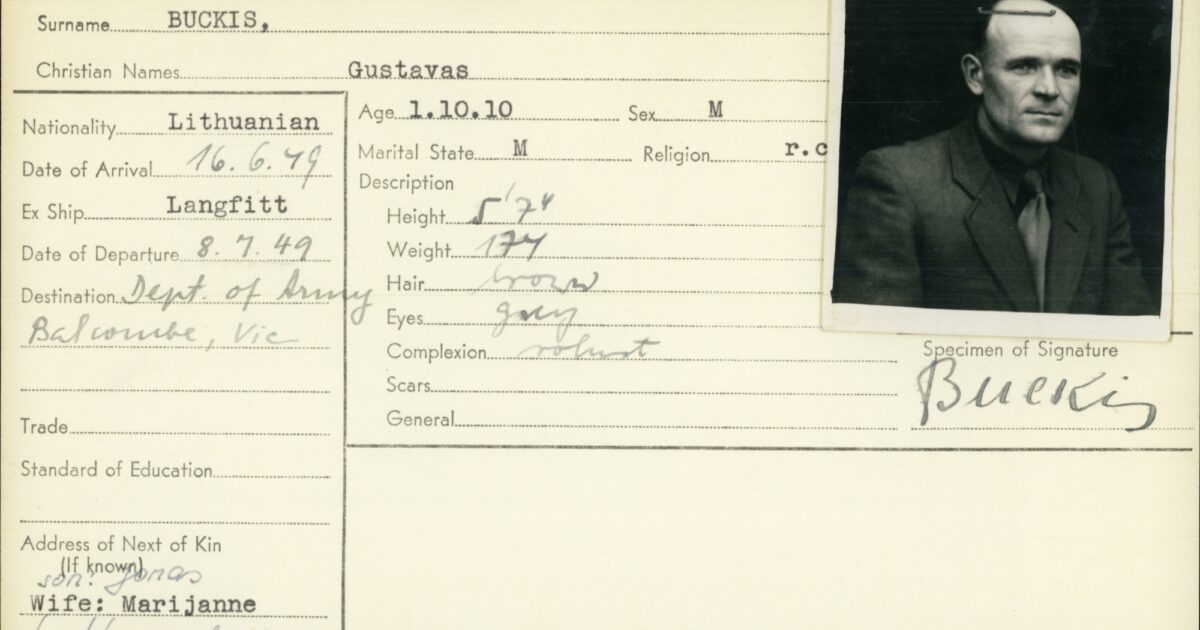 Surname BUCKIS,
Christian Names Gustavas
Nationality Lithuanian
Date of Arrival 16.6.49
Ex Ship Langfitt
Date of Departure 8.7.49
Destination Dept. of Army
Balcombe, Vic
Trade
Standard of Education
Address of Next of Kin
(If known)
son: Jonas
Wife: Marijanne
Age 1.10.10 Sex M
Marital State M Religion r.c
Description
Height 5'7"
Weight 174
Hair brown
Eyes grey
Complexion robust
Scars
General
Specimen of Signature
Buckis